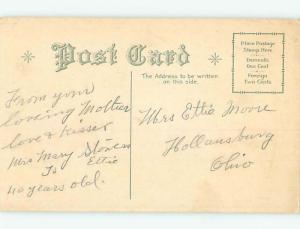 Post Card
The Address to be written
on this side.
Place Postage
Stamp Here
Domestic
One Cent
Foreign
Two Cents
From your
loving Mother
love & Kisses
Mrs Mary
To Ettie
40 years old.
Mrs Ettie Moore
Hollansburg
Ohio